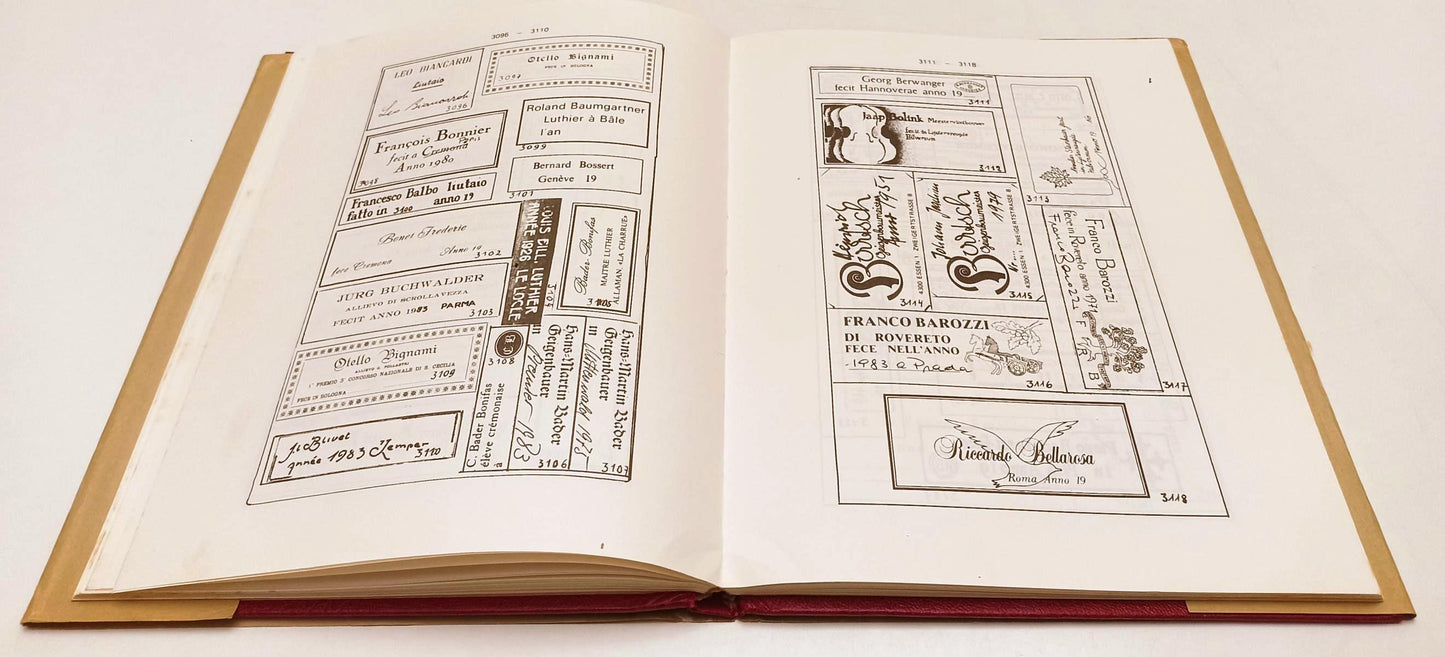 3096 - 3110
LEO BIANCARDI
Liutaio
3096
Otello Bignami
FECE IN BOLOGNA
3097
François Bonnier
Paris
fecit a Cremona
Anno 1980
3098
Roland Baumgartner
Luthier à Bâle
l'an
3099
Francesco Balbo liutaio
fatto in 3100 anno 19
Bernard Bossert
Genève 19
3101
Benet Frederic
Anno 19
fece Cremona
3102
JURG BUCHWALDER
ALLIEVO DI SCROLLAVEZZA
FECIT ANNO 1983 PARMA
3103
LOUIS EILL, LUTHIER
ANNÉE 1926 LE LOCLE
3104
Bader Bonifas
MAITRE LUTHIER
ALLAMAN «LA CHARRUE»
3105
Otello Bignami
ALLIEVO G. POLLASTRI
1° PREMIO 3° CONCORSO NAZIONALE DI S. CECILIA
FECE IN BOLOGNA
3109
3108
C. Bader Bonifas
élève crémonaise
a
Hans-Martin Bader
Geigenbauer
in
1983
3106
Hans-Martin Bader
Geigenbauer
in Mittenwald 1975
3107
Blivet
année 1983
3110
3111 - 3118
Georg Berwanger
fecit Hannoverae anno 19
3111
Jaap Bolink Meestervioolbouwer
Hilversum
3112
3113
Borritsch
Geigenbaumeister
1951
4300 ESSEN 1 ZWEIGERTSTRASSE 8
3114
Borritsch
Geigenbaumeister
1979
Nr....
4300 ESSEN 1 ZWEIGERTSTRASSE 8
3115
FRANCO BAROZZI
DI ROVERETO
FECE NELL'ANNO
1983 a Prada
3116
Franco Barozzi
fece in Rovereto anno 1971
F R B
3117
Riccardo Bellarosa
Roma Anno 19
3118